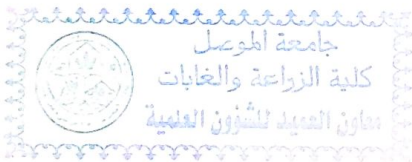 جامعة الموصل
كلية الزراعة والغابات
معاون العميد للشؤون العلمية